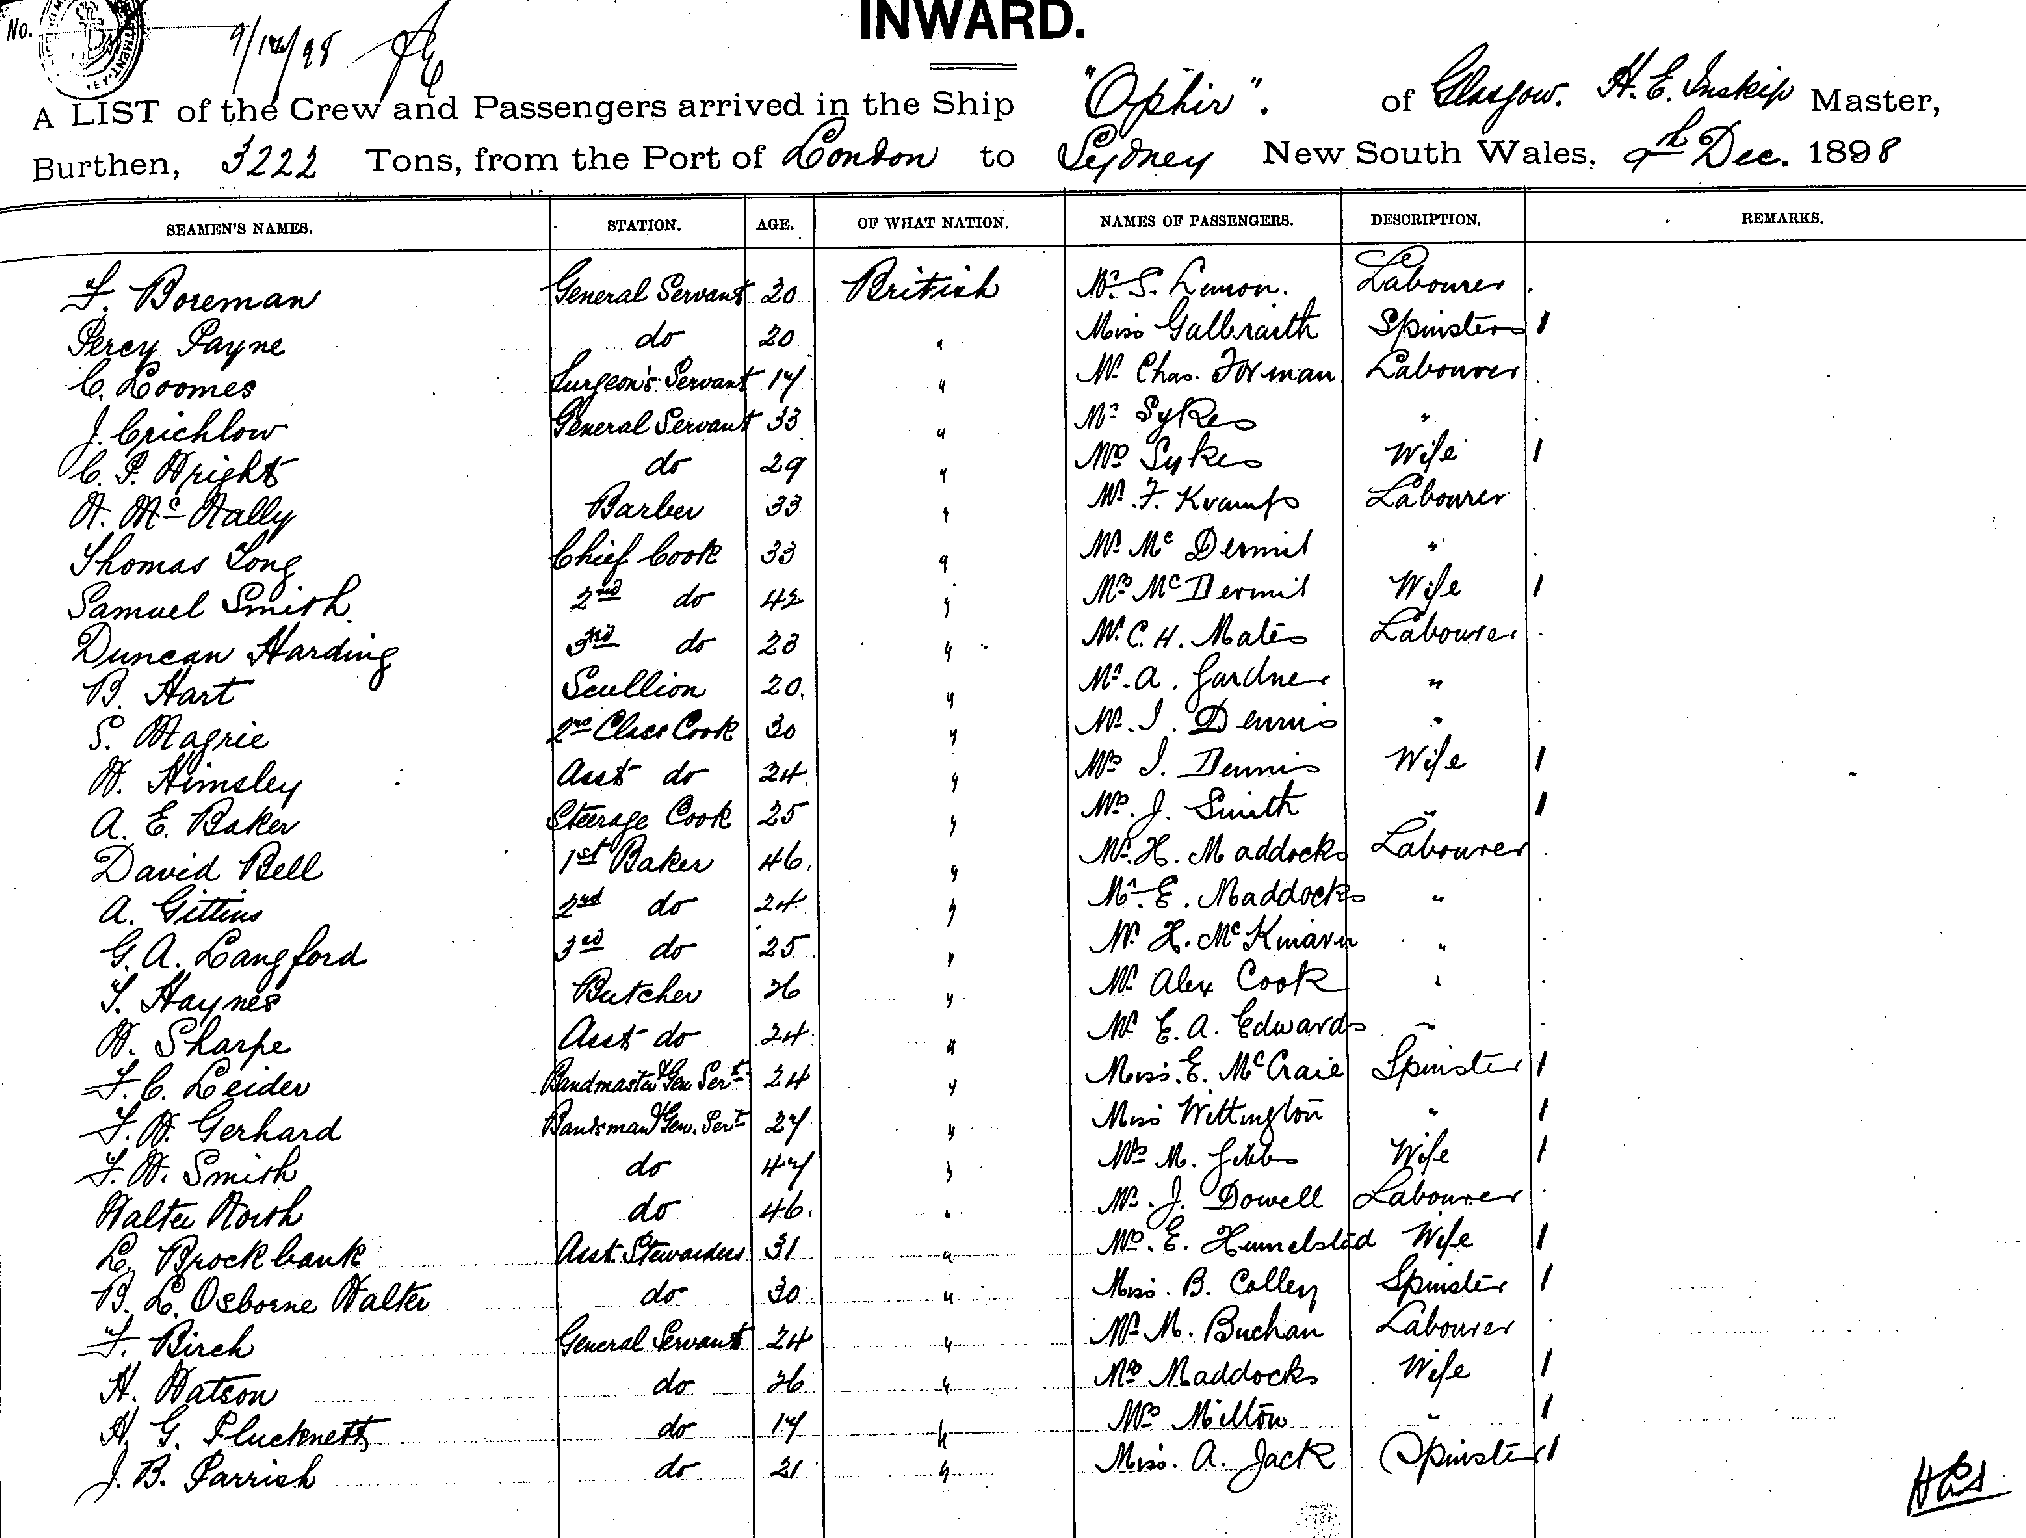 No.
9/12/98
INWARD.
A LIST of the Crew and Passengers arrived in the Ship "Ophir". of Glasgow. H. E. Inskip Master,
Burthen, 3222 Tons, from the Port of London to Sydney New South Wales, 9th Dec. 1898
SEAMEN'S NAMES. STATION. AGE. OF WHAT NATION. NAMES OF PASSENGERS. DESCRIPTION. REMARKS.
F. Boreman General Servant 20 British Mr. S. Lemon. Labourer
Percy Payne do 20 " Miss Galbraith Spinster 1
C. Loomes Surgeon's Servant 17 " Mr. Chas. Forman Labourer
J. Crichlow General Servant 33 " Mr Sykes "
C. P. Wright do 29 " Mrs Sykes Wife 1
W. McNally Barber 33 " Mr. F. Labourer
Thomas Long Chief Cook 33 " Mr. McDermid "
Samuel Smith. 2nd do 42 " Mrs McDermid Wife 1
Duncan Harding 3rd do 23 " Mr. C. H. Mates Labourer
B. Hart Scullion 20. " Mr. A. Gardner "
S. Magrie 2nd Class Cook 30 " Mr. I. Dennis "
W. Himsley Asst do 24 " Mrs I. Dennis Wife 1
A. E. Baker Steerage Cook 25 " Mrs. J. Smith " 1
David Bell 1st Baker 46. " Mr. H. Maddocks Labourer
A. Gittins 2nd do 24 " Mr. E. Maddocks "
G. A. Langford 3rd do 25 " Mr. H. "
T. Haynes Butcher 26 " Mr. Alex Cook "
W. Sharpe Asst do 24 " Mr. E. A. Edwards "
F. C. Leider Bandmaster & Gen Sert 24 " Miss. E. McCraie Spinster 1
F. W. Gerhard Bandsman & Gen. Sert 27 " Miss Wittington " 1
F. W. Smith do 47 " Mrs M. Gibbs Wife 1
Walter North do 46. " Mr. J. Dowell Labourer
L. Brockbank Asst Stewardess 31 " Mrs. E. Wife 1
B. L. Osborne Walter do 30 " Miss. B. Colley Spinster 1
F. Birch General Servant 24 " Mr. M. Buchan Labourer
H. Watson do 26 " Mrs Maddocks Wife 1
H. G. Plucknett do 17 " Mrs Milton " 1
J. B. Parrish do 21 " Miss. A. Jack Spinster 1